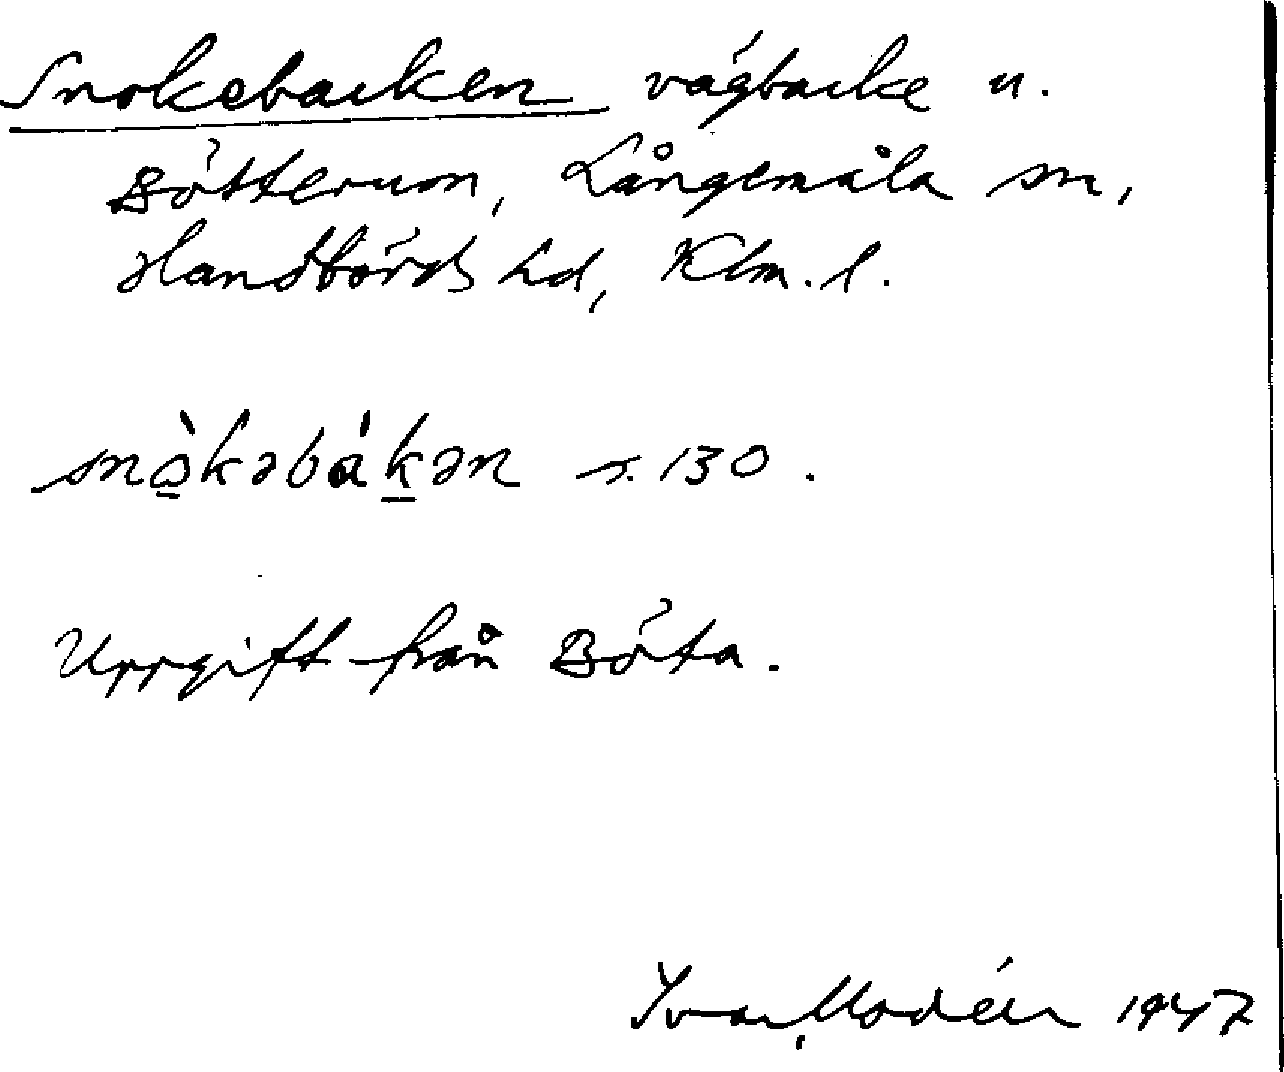 Snokebacken vägbacke n.
Bötterum, Långemåla sn,
Handbörds hd, Klm. l.
snò̱kəbáḵən s. 130.
Uppgift från Böta.
Ivar Modéer 1947